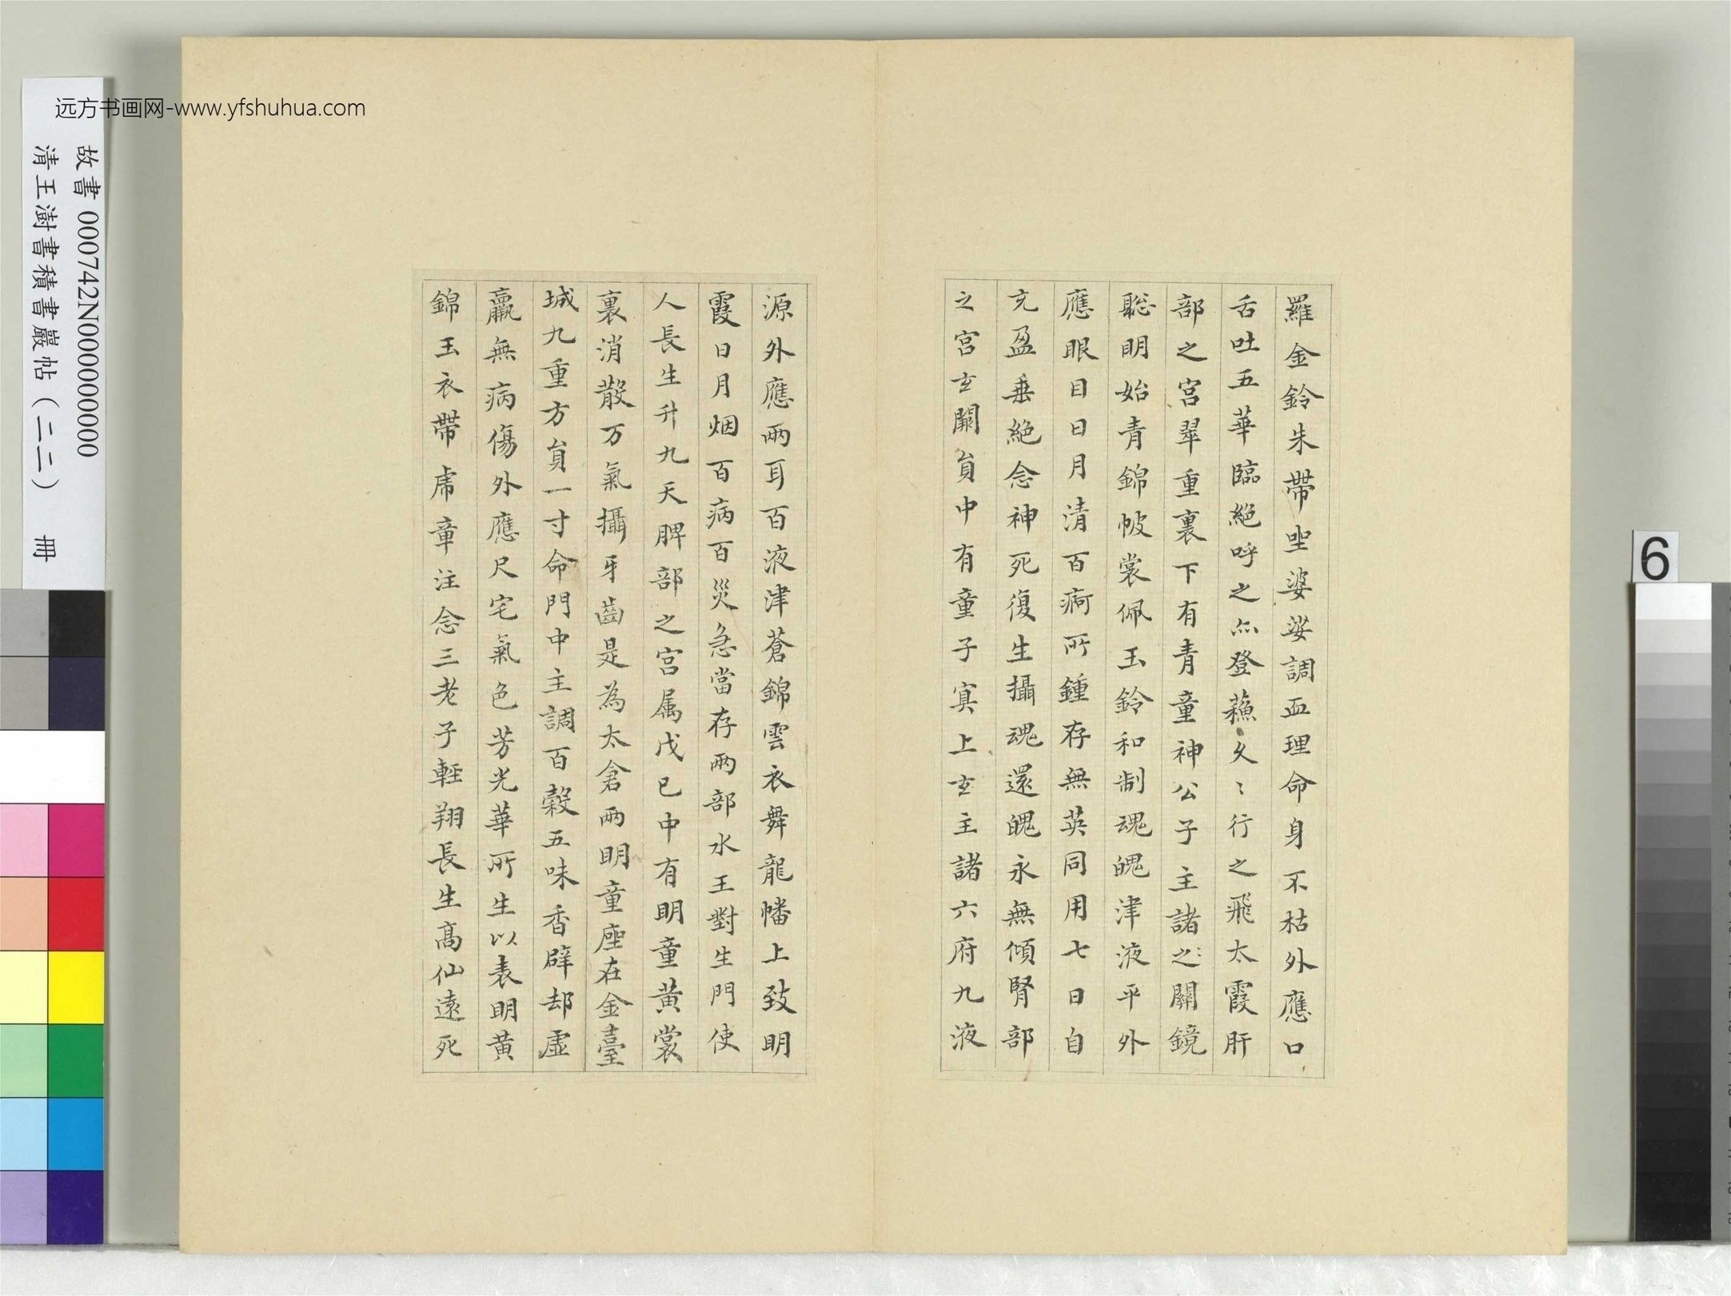 远方书画网-www.yfshuhua.com
故書 000742N000000000
清王澍書積書巖帖（二二） 冊
6
羅金鈴朱帶坐婆娑調血理命身不枯外應口
舌吐五華臨絕呼之亦登蘓久〻行之飛太霞肝
部之宮翠重裏下有青童神公子主諸之關鏡
聡明始青錦帔裳佩玉鈴和制魂魄津液平外
應眼目日月清百痾所鍾存無英同用七日自
充盈垂絕念神死復生攝魂還魄永無傾腎部
之宮玄闕貟中有童子冥上玄主諸六府九液
源外應兩耳百液津蒼錦雲衣舞龍幡上致明
霞日月烟百病百災急當存兩部水王對生門使
人長生升九天脾部之宮属戊己中有明童黃裳
裏消散万氣攝牙齒是為太倉兩明童座在金臺
城九重方貟一寸命門中主調百穀五味香辟却虛
羸無病傷外應尺宅氣色芳光華所生以表明黃
錦玉衣帶虎章注念三老子輕翔長生高仙遠死